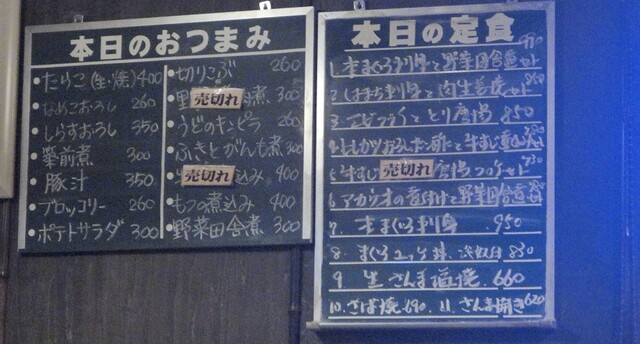 本日のおつまみ
たらこ(生・焼) 400
なめこおろし 260
しらすおろし 350
筑前煮 300
豚汁 350
ブロッコリー 260
ポテトサラダ 300
切りこぶ 260
売切れ 煮 300
うどのキンピラ 260
ふきとがんも煮 300
売切れ 込み 400
もつの煮込み 400
野菜田舎煮 300
本日の定食
1. 本まぐろ刺身と野菜田舎煮セット
2. しまあじ刺身と肉生姜焼セット
3. エビフライととり唐揚 850
5. 売切れ コロッケセット
6. アカウオの煮付けと野菜田舎煮セット
7. 本まぐろ刺身 950
8. まぐろユッケ 830
9. 生さんま塩焼 660
10. さば焼 690. 11. さんま開き 620